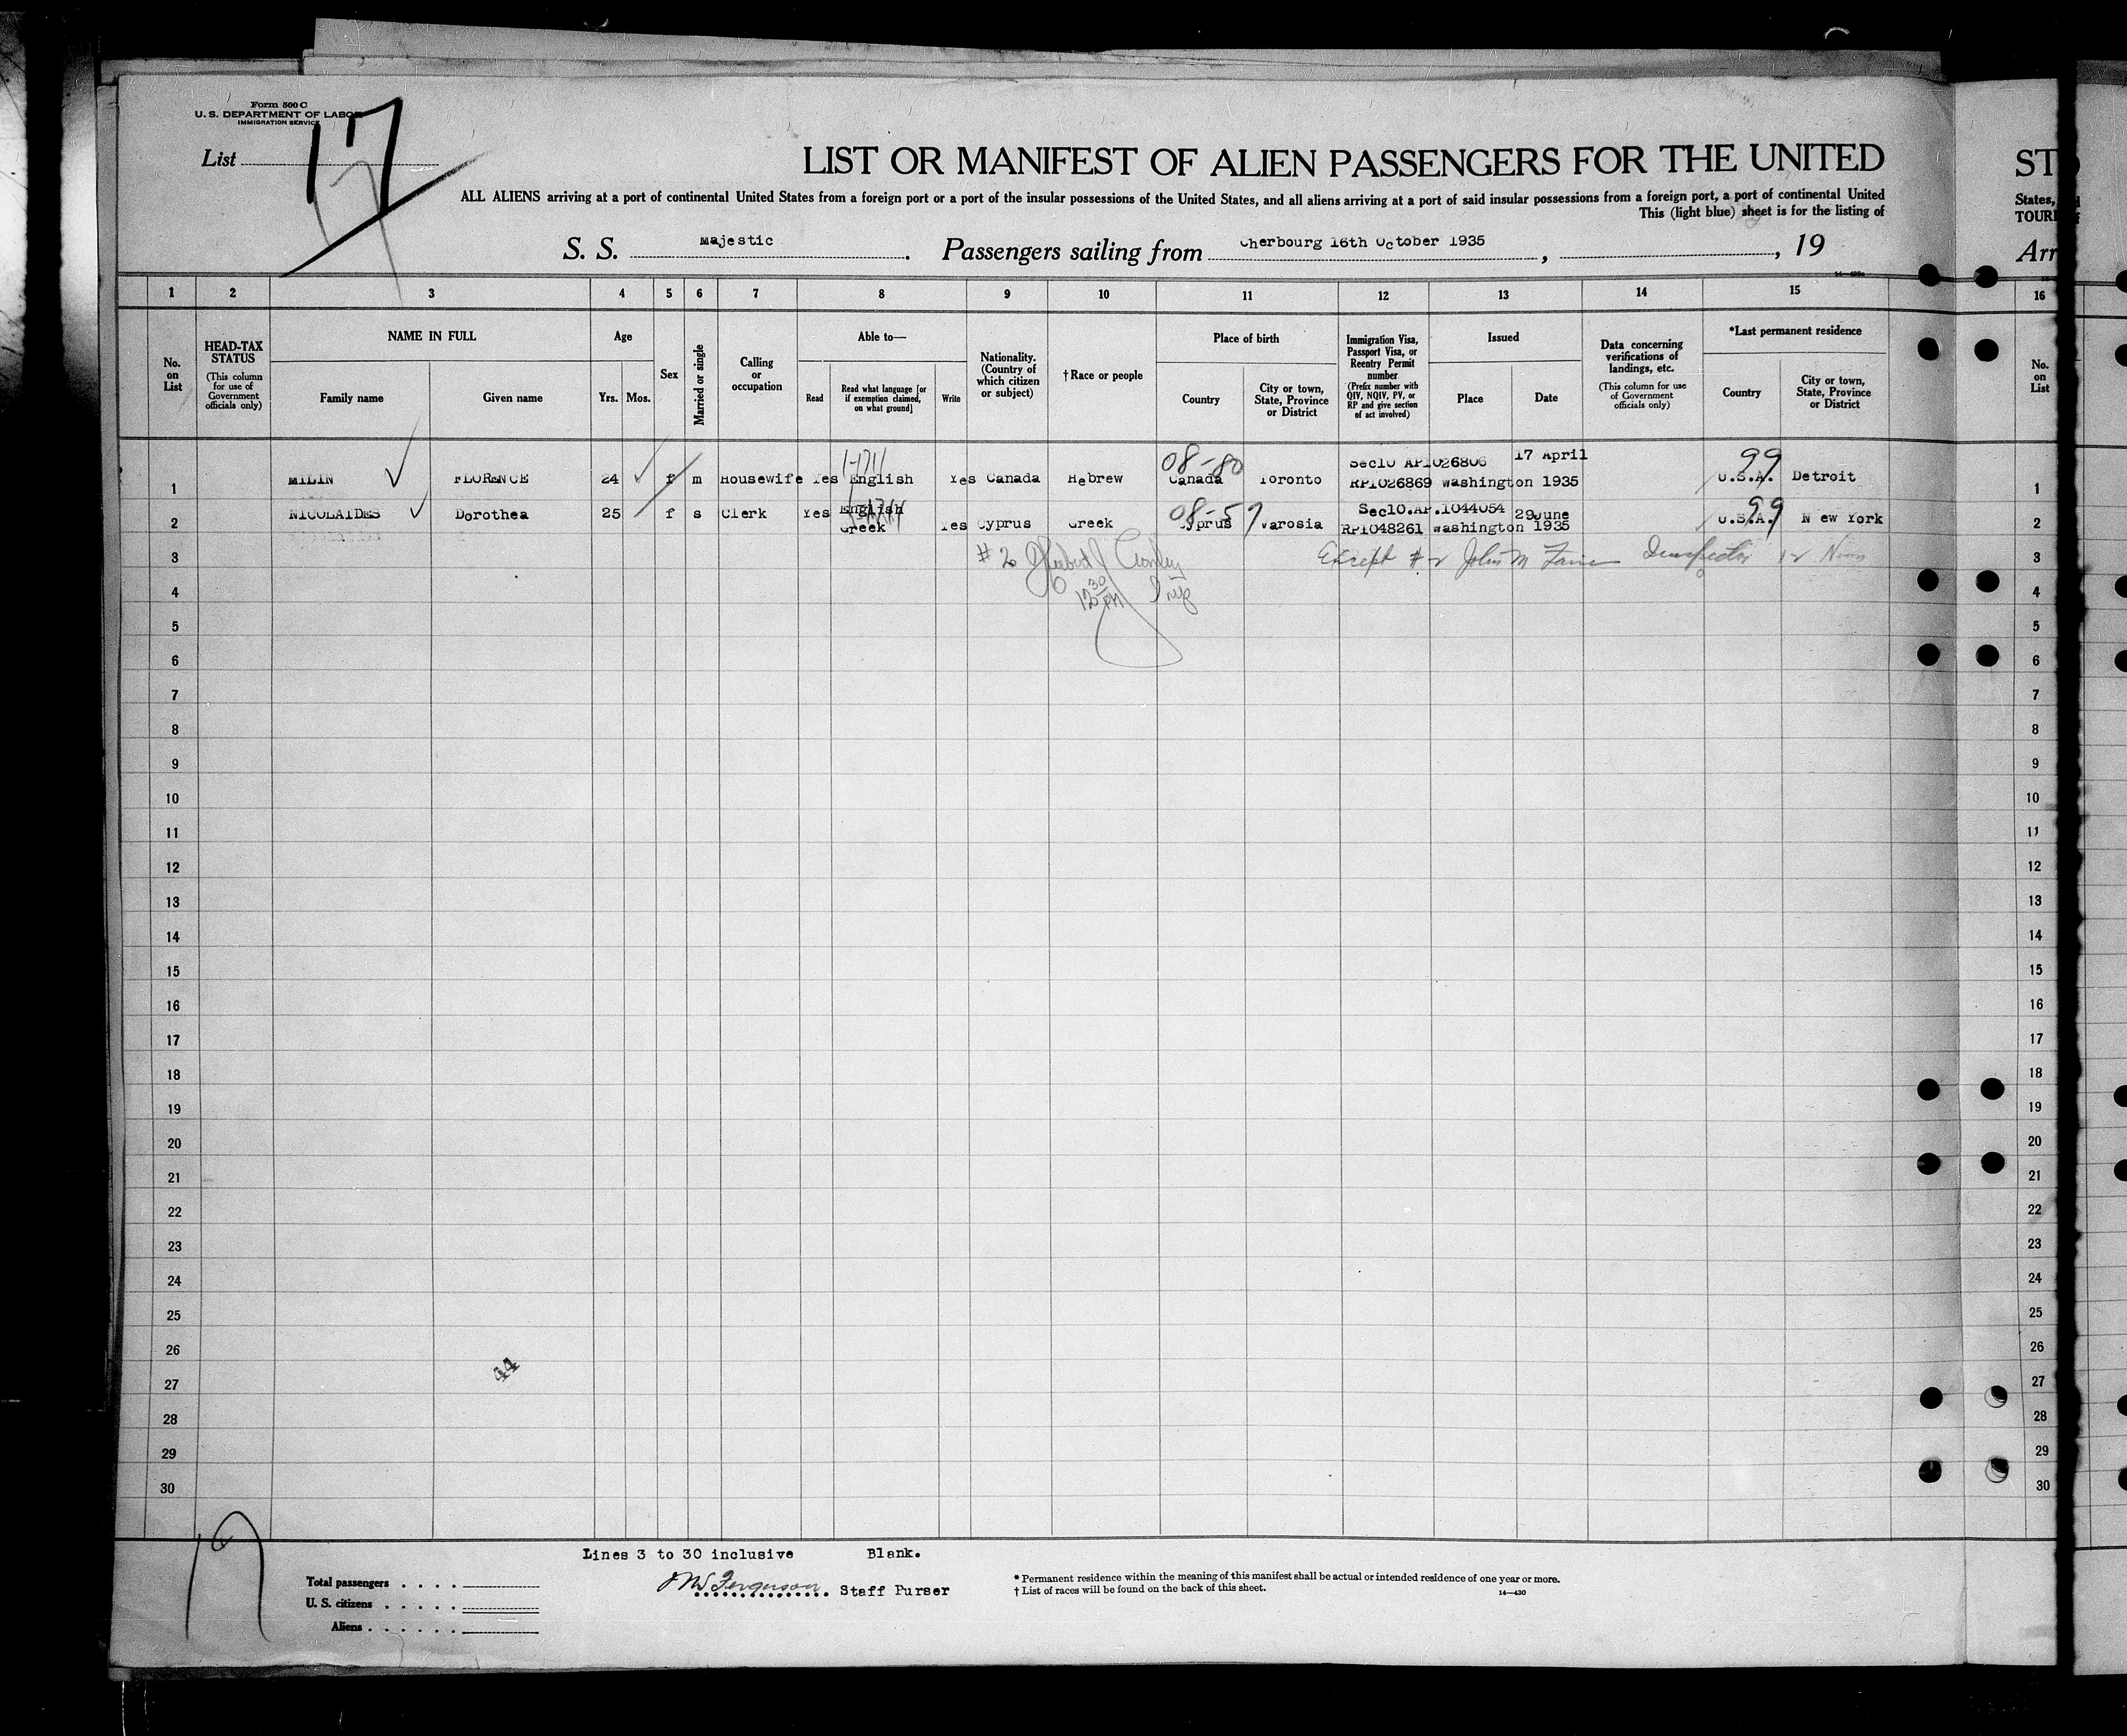 Form 500 C
U. S. DEPARTMENT OF LABOR
IMMIGRATION SERVICE
List 17
LIST OR MANIFEST OF ALIEN PASSENGERS FOR THE UNITED
ALL ALIENS arriving at a port of continental United States from a foreign port or a port of the insular possessions of the United States, and all aliens arriving at a port of said insular possessions from a foreign port, a port of continental United
This (light blue) sheet is for the listing of
S. S. Majestic. Passengers sailing from Cherbourg 16th October 1935, , 19
ST
States,
TOURI
Arr
1 2 3 4 5 6 7 8 9 10 11 12 13 14 15 16
No. on List
HEAD-TAX STATUS (This column for use of Government officials only)
NAME IN FULL
Family name Given name
Age
Yrs. Mos.
Sex
Married or single
Calling or occupation
Able to—
Read Read what language [or if exemption claimed, on what ground] Write
Nationality. (Country of which citizen or subject)
†Race or people
Place of birth
Country City or town, State, Province or District
Immigration Visa, Passport Visa, or Reentry Permit number (Prefix number with QIV, NQIV, PV, or RP and give section of act involved)
Issued
Place Date
Data concerning verifications of landings, etc. (This column for use of Government officials only)
*Last permanent residence
Country City or town, State, Province or District
No. on List
08-80 Sec10 AP1026806 17 April 99
1 MILIN FLORENCE 24 f m Housewife Yes English Yes Canada Hebrew Canada Toronto RP1026869 Washington 1935 U.S.A. Detroit 1
2 NICOLAIDES Dorothea 25 f s Clerk Yes English Greek Yes Cyprus Greek 08-57 Cyprus Varosia Sec10.AP.1044054 RP1048261 Washington 29 June 1935 99 U.S.A. New York 2
3 # 2 Except # 2 John M Inspector 3
4 12 30 PM Insp 4
5 5
6 6
7 7
8 8
9 9
10 10
11 11
12 12
13 13
14 14
15 15
16 16
17 17
18 18
19 19
20 20
21 21
22 22
23 23
24 24
25 25
26 26
44
27 27
28 28
29 29
30 30
Lines 3 to 30 inclusive Blank.
Total passengers . . . .
U. S. citizens . . . . .
Aliens . . . . . .
Ferguson Staff Purser
* Permanent residence within the meaning of this manifest shall be actual or intended residence of one year or more.
† List of races will be found on the back of this sheet.
14—430